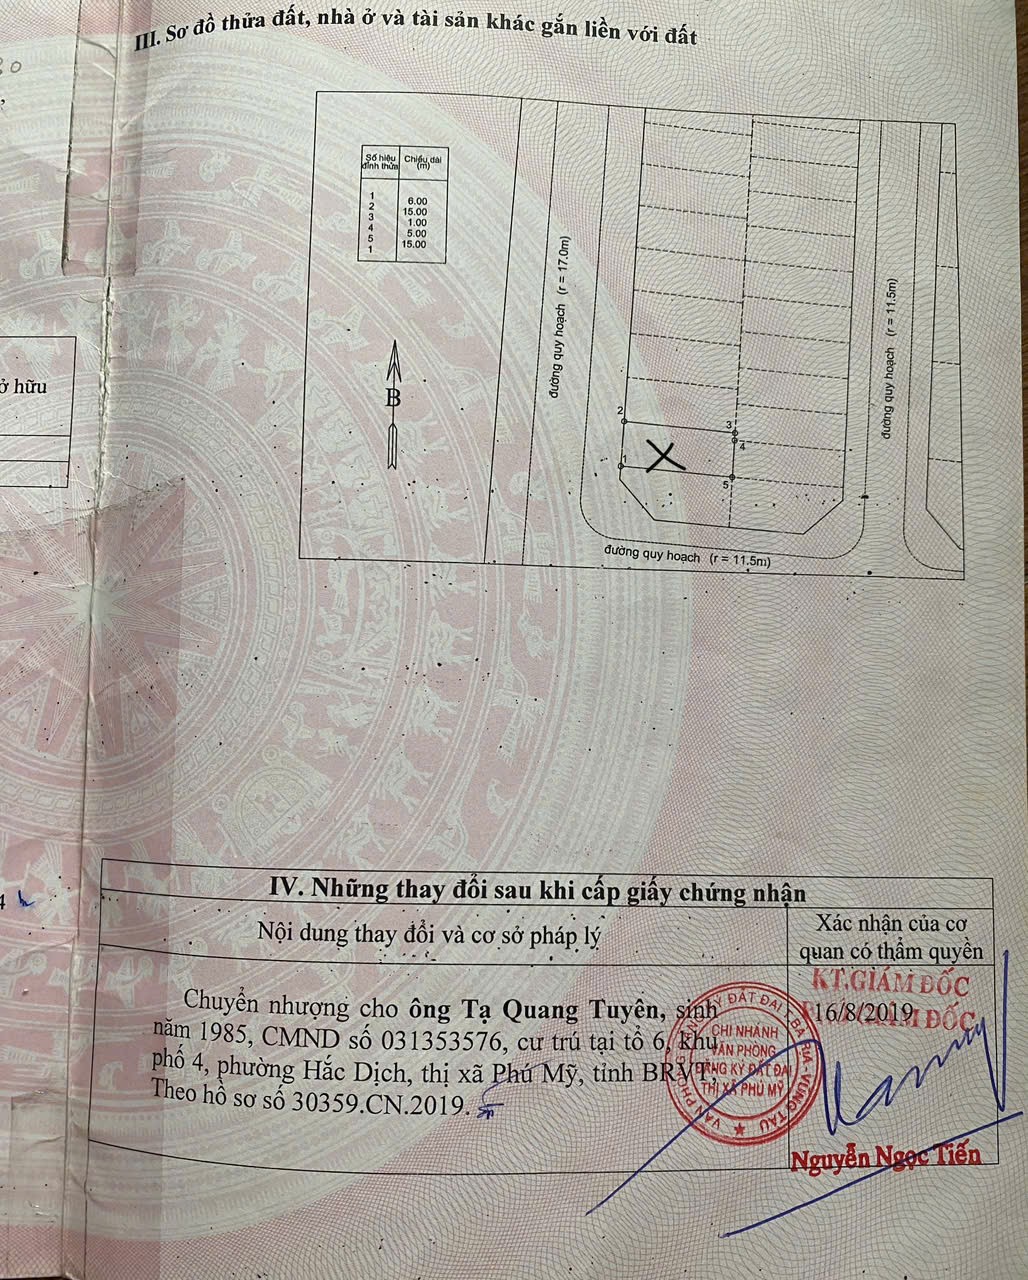 III. Sơ đồ thửa đất, nhà ở và tài sản khác gắn liền với đất
Số hiệu đỉnh thửa Chiều dài (m)
1
6.00
2
15.00
3
1.00
4
5.00
5
15.00
1
B
đường quy hoạch (r = 17.0m)
đường quy hoạch (r = 11.5m)
2
3
4
1
5
đường quy hoạch (r = 11.5m)
ở hữu
IV. Những thay đổi sau khi cấp giấy chứng nhận
Nội dung thay đổi và cơ sở pháp lý
Xác nhận của cơ
quan có thẩm quyền
Chuyển nhượng cho ông Tạ Quang Tuyên, sinh
năm 1985, CMND số 031353576, cư trú tại tổ 6, khu
phố 4, phường Hắc Dịch, thị xã Phú Mỹ, tỉnh BRVT.
Theo hồ sơ số 30359.CN.2019.
KT.GIÁM ĐỐC
16/8/2019
GIÁM ĐỐC
CHI NHÁNH
VĂN PHÒNG
ĐĂNG KÝ ĐẤT ĐAI
THỊ XÃ PHÚ MỸ
Nguyễn Ngọc Tiến